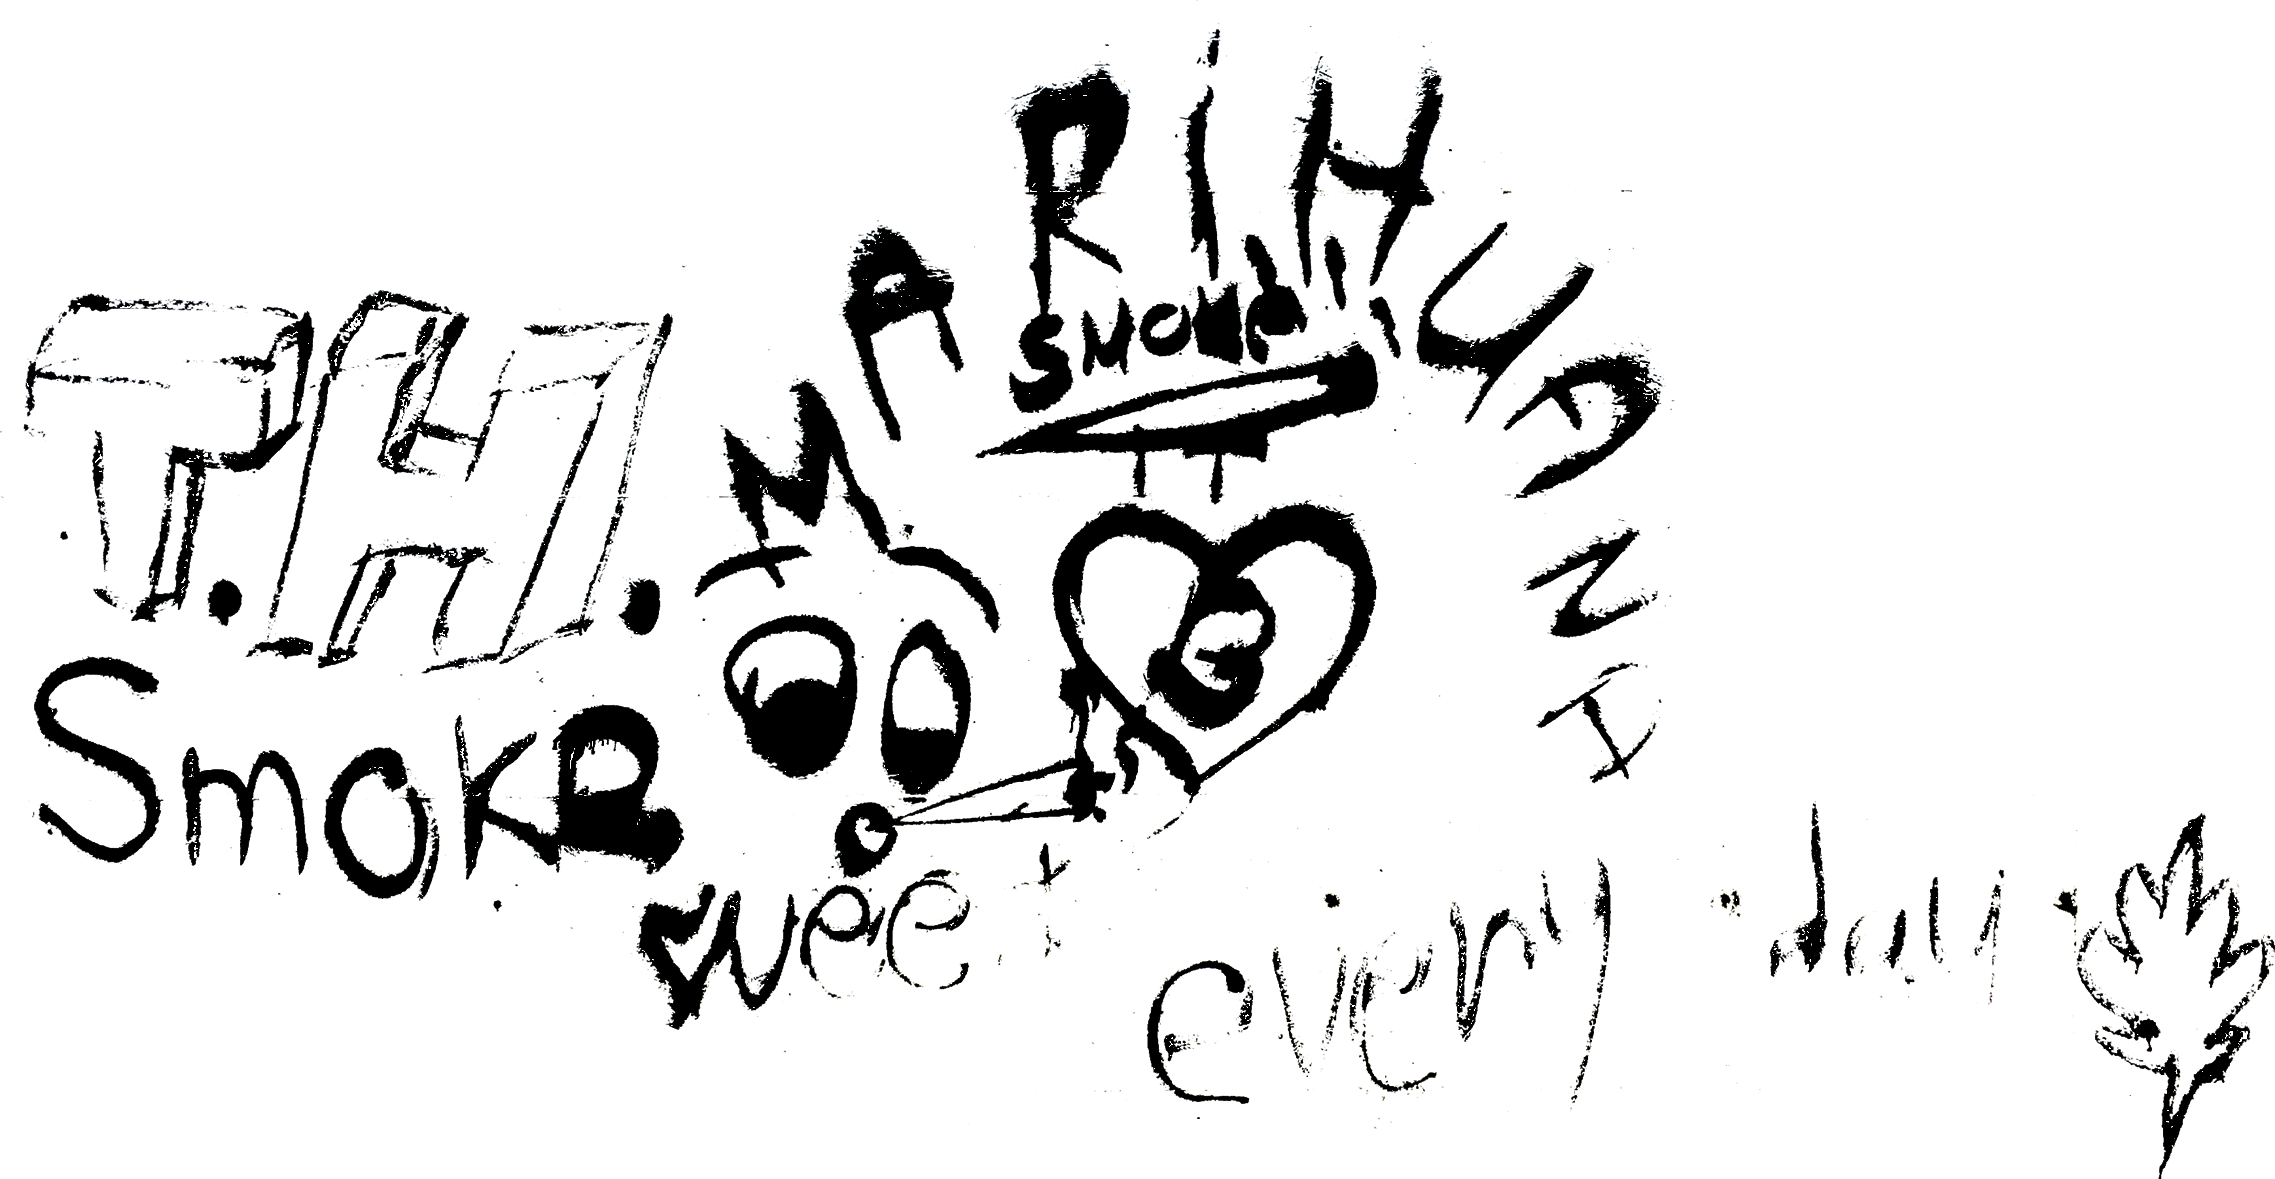 T.H.
MARIHUANI
SMOKE
SmOKE
weet
every day